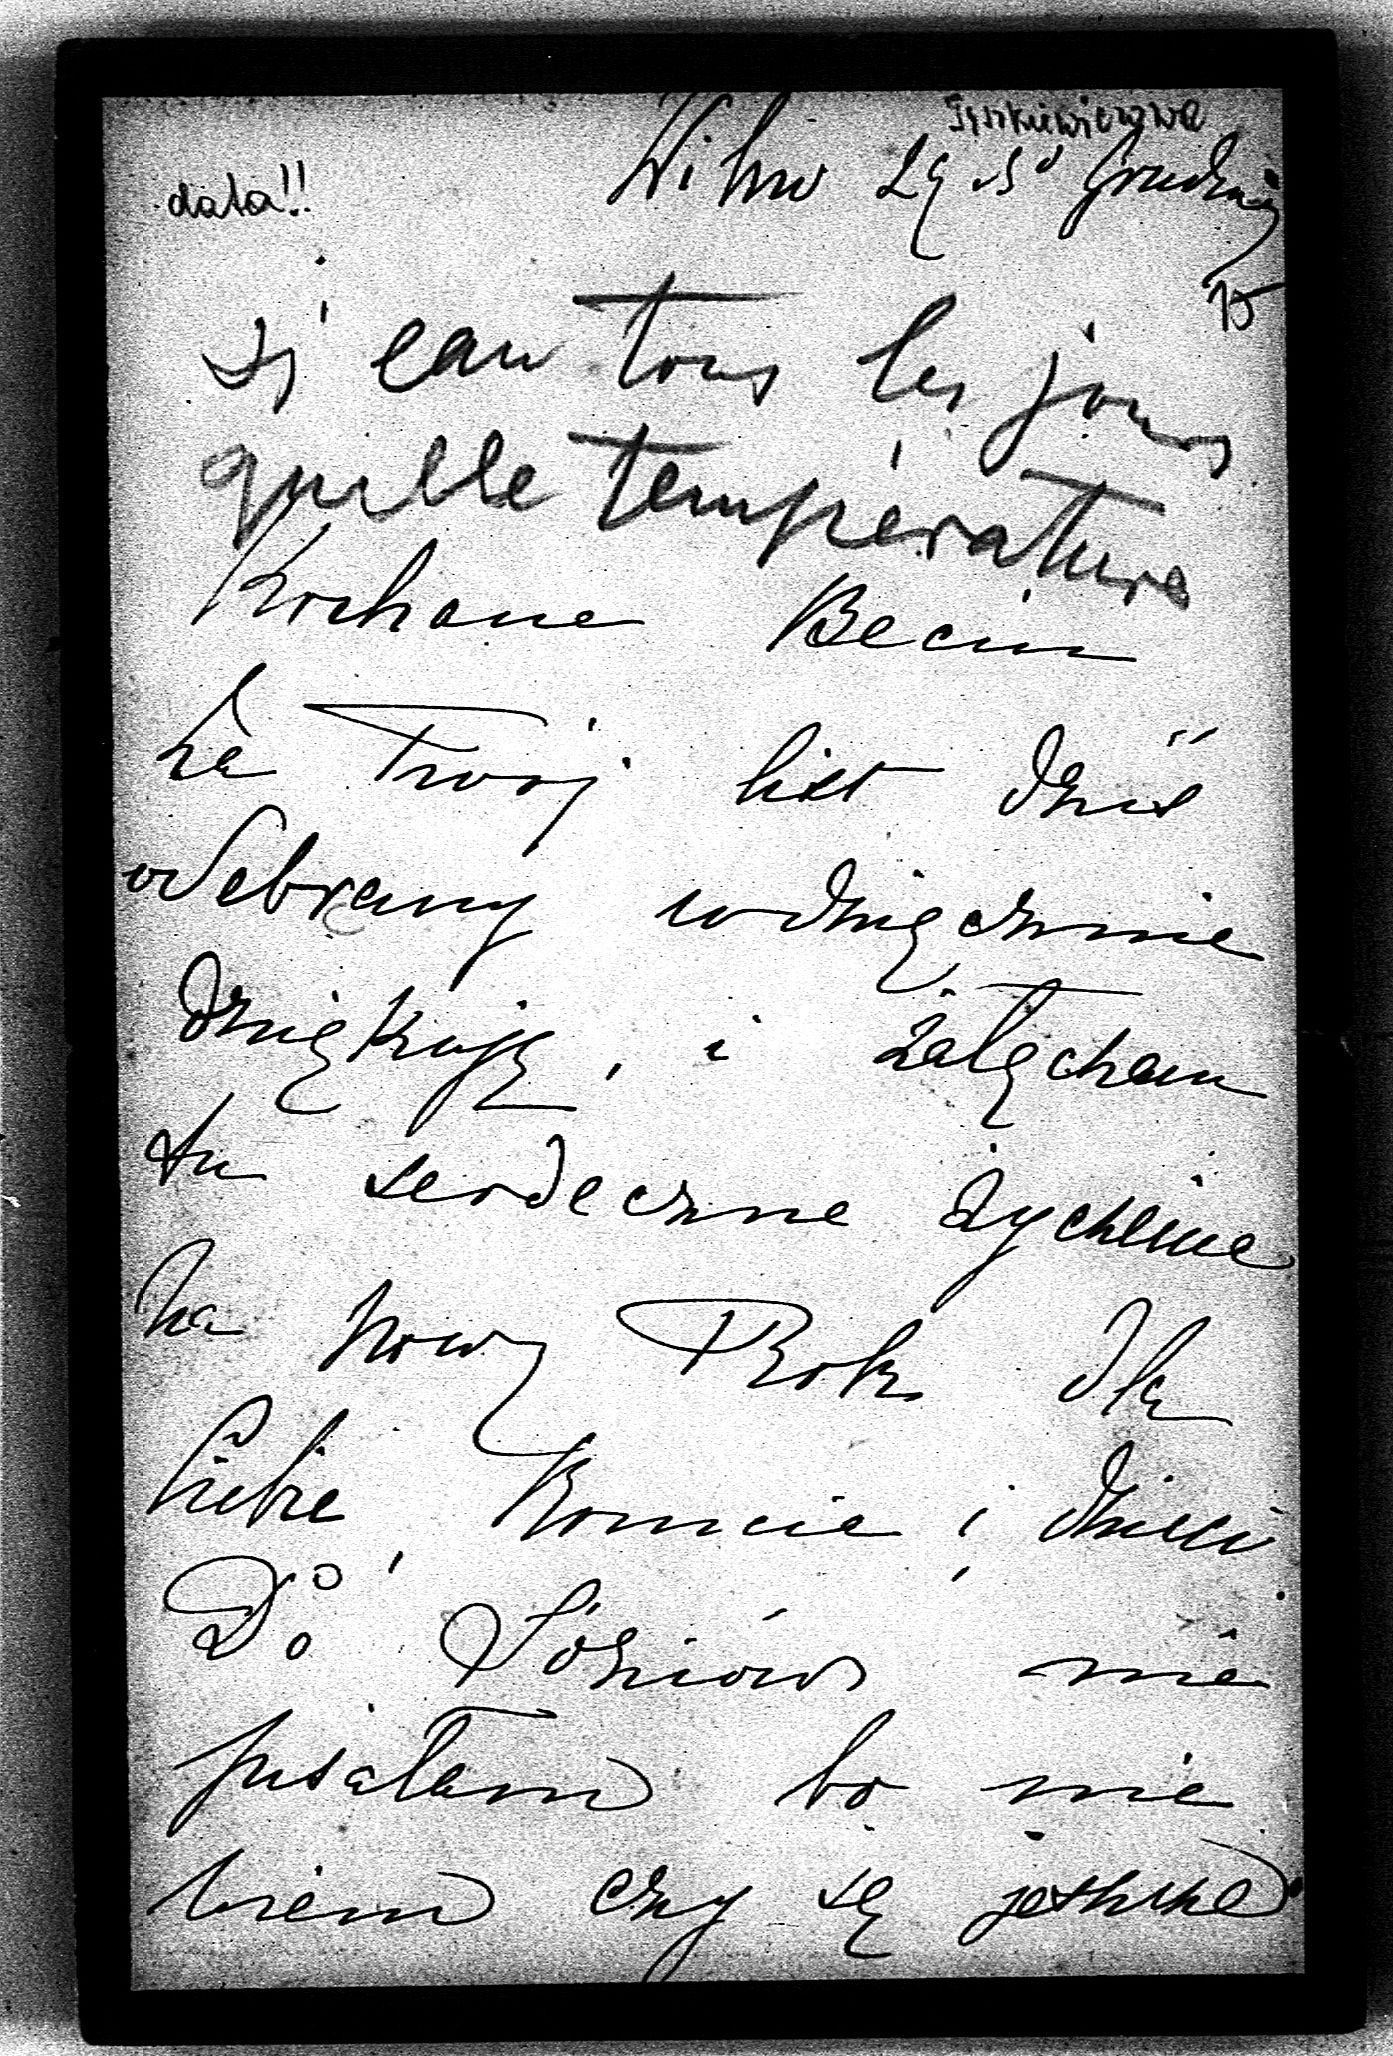 Tyszkiewiczowa
data!!
Wilno 29 Grudnia
15
si eau tous les jours
quelle température
Kochane Becin
Za Twój list dziś
odebrany wdzięcznie
dziękuję, i załączam
tu serdeczne życzenie
na Nowy Rok dla
Ciebie, Romcie i dzieci.
Do Józiów nie
pisałam bo nie
wiem czy są jeszcze